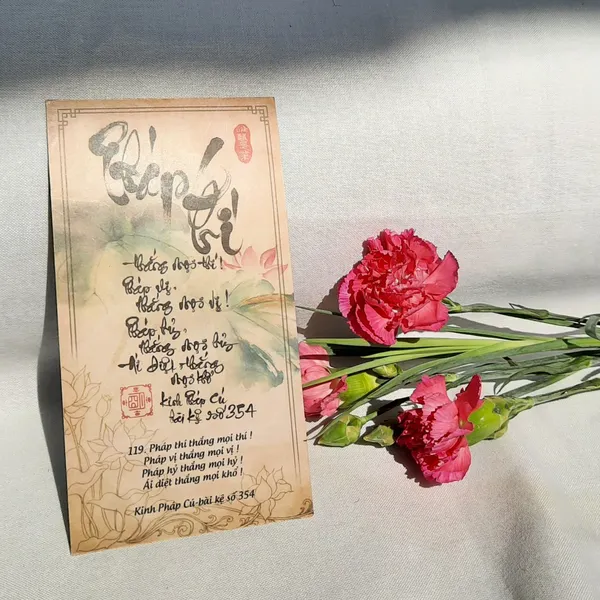 Pháp thí
Thắng mọi thí !
Pháp vị,
thắng mọi vị !
Pháp hỷ,
thắng mọi hỷ
Ái diệt thắng
mọi khổ
Kinh Pháp Cú
bài kệ số 354
119. Pháp thí thắng mọi thí !
Pháp vị thắng mọi vị !
Pháp hỷ thắng mọi hỷ !
Ái diệt thắng mọi khổ !
Kinh Pháp Cú-bài kệ số 354